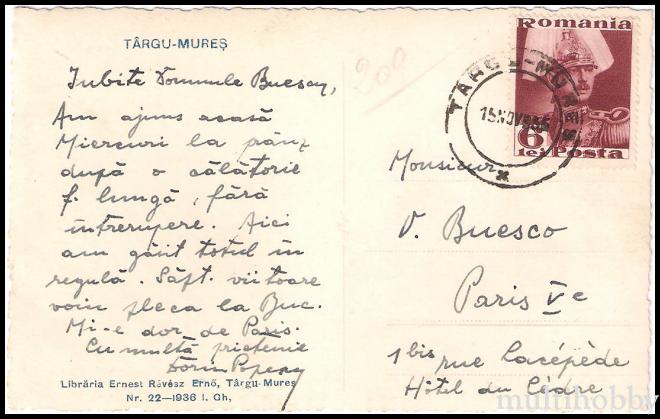 TÂRGU-MUREȘ
Iubite Domnule Buescu,
Am ajuns acasă
Miercuri la prânz
după o călătorie
f. lungă, fără
întrerupere. Aici
am găsit totul în
regulă. Săpt. viitoare
voiu pleca la Buc.
Mi-e dor de Paris.
Cu multă prietenie
Dorin Popescu
Librăria Ernest Révész Ernő, Târgu-Mureș
Nr. 22—1936 I. Gh,
200
Romania
6
lei Posta
TÂRGU-MUREȘ
15 NOV 936
Monsieur
V. Buesco
Paris Ve
1 bis rue Lacépède
Hôtel du Cèdre
multihobby